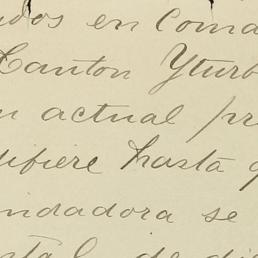 idos en Coma
Canton Yturb
n actual pr
difiere hasta q
ndadora se